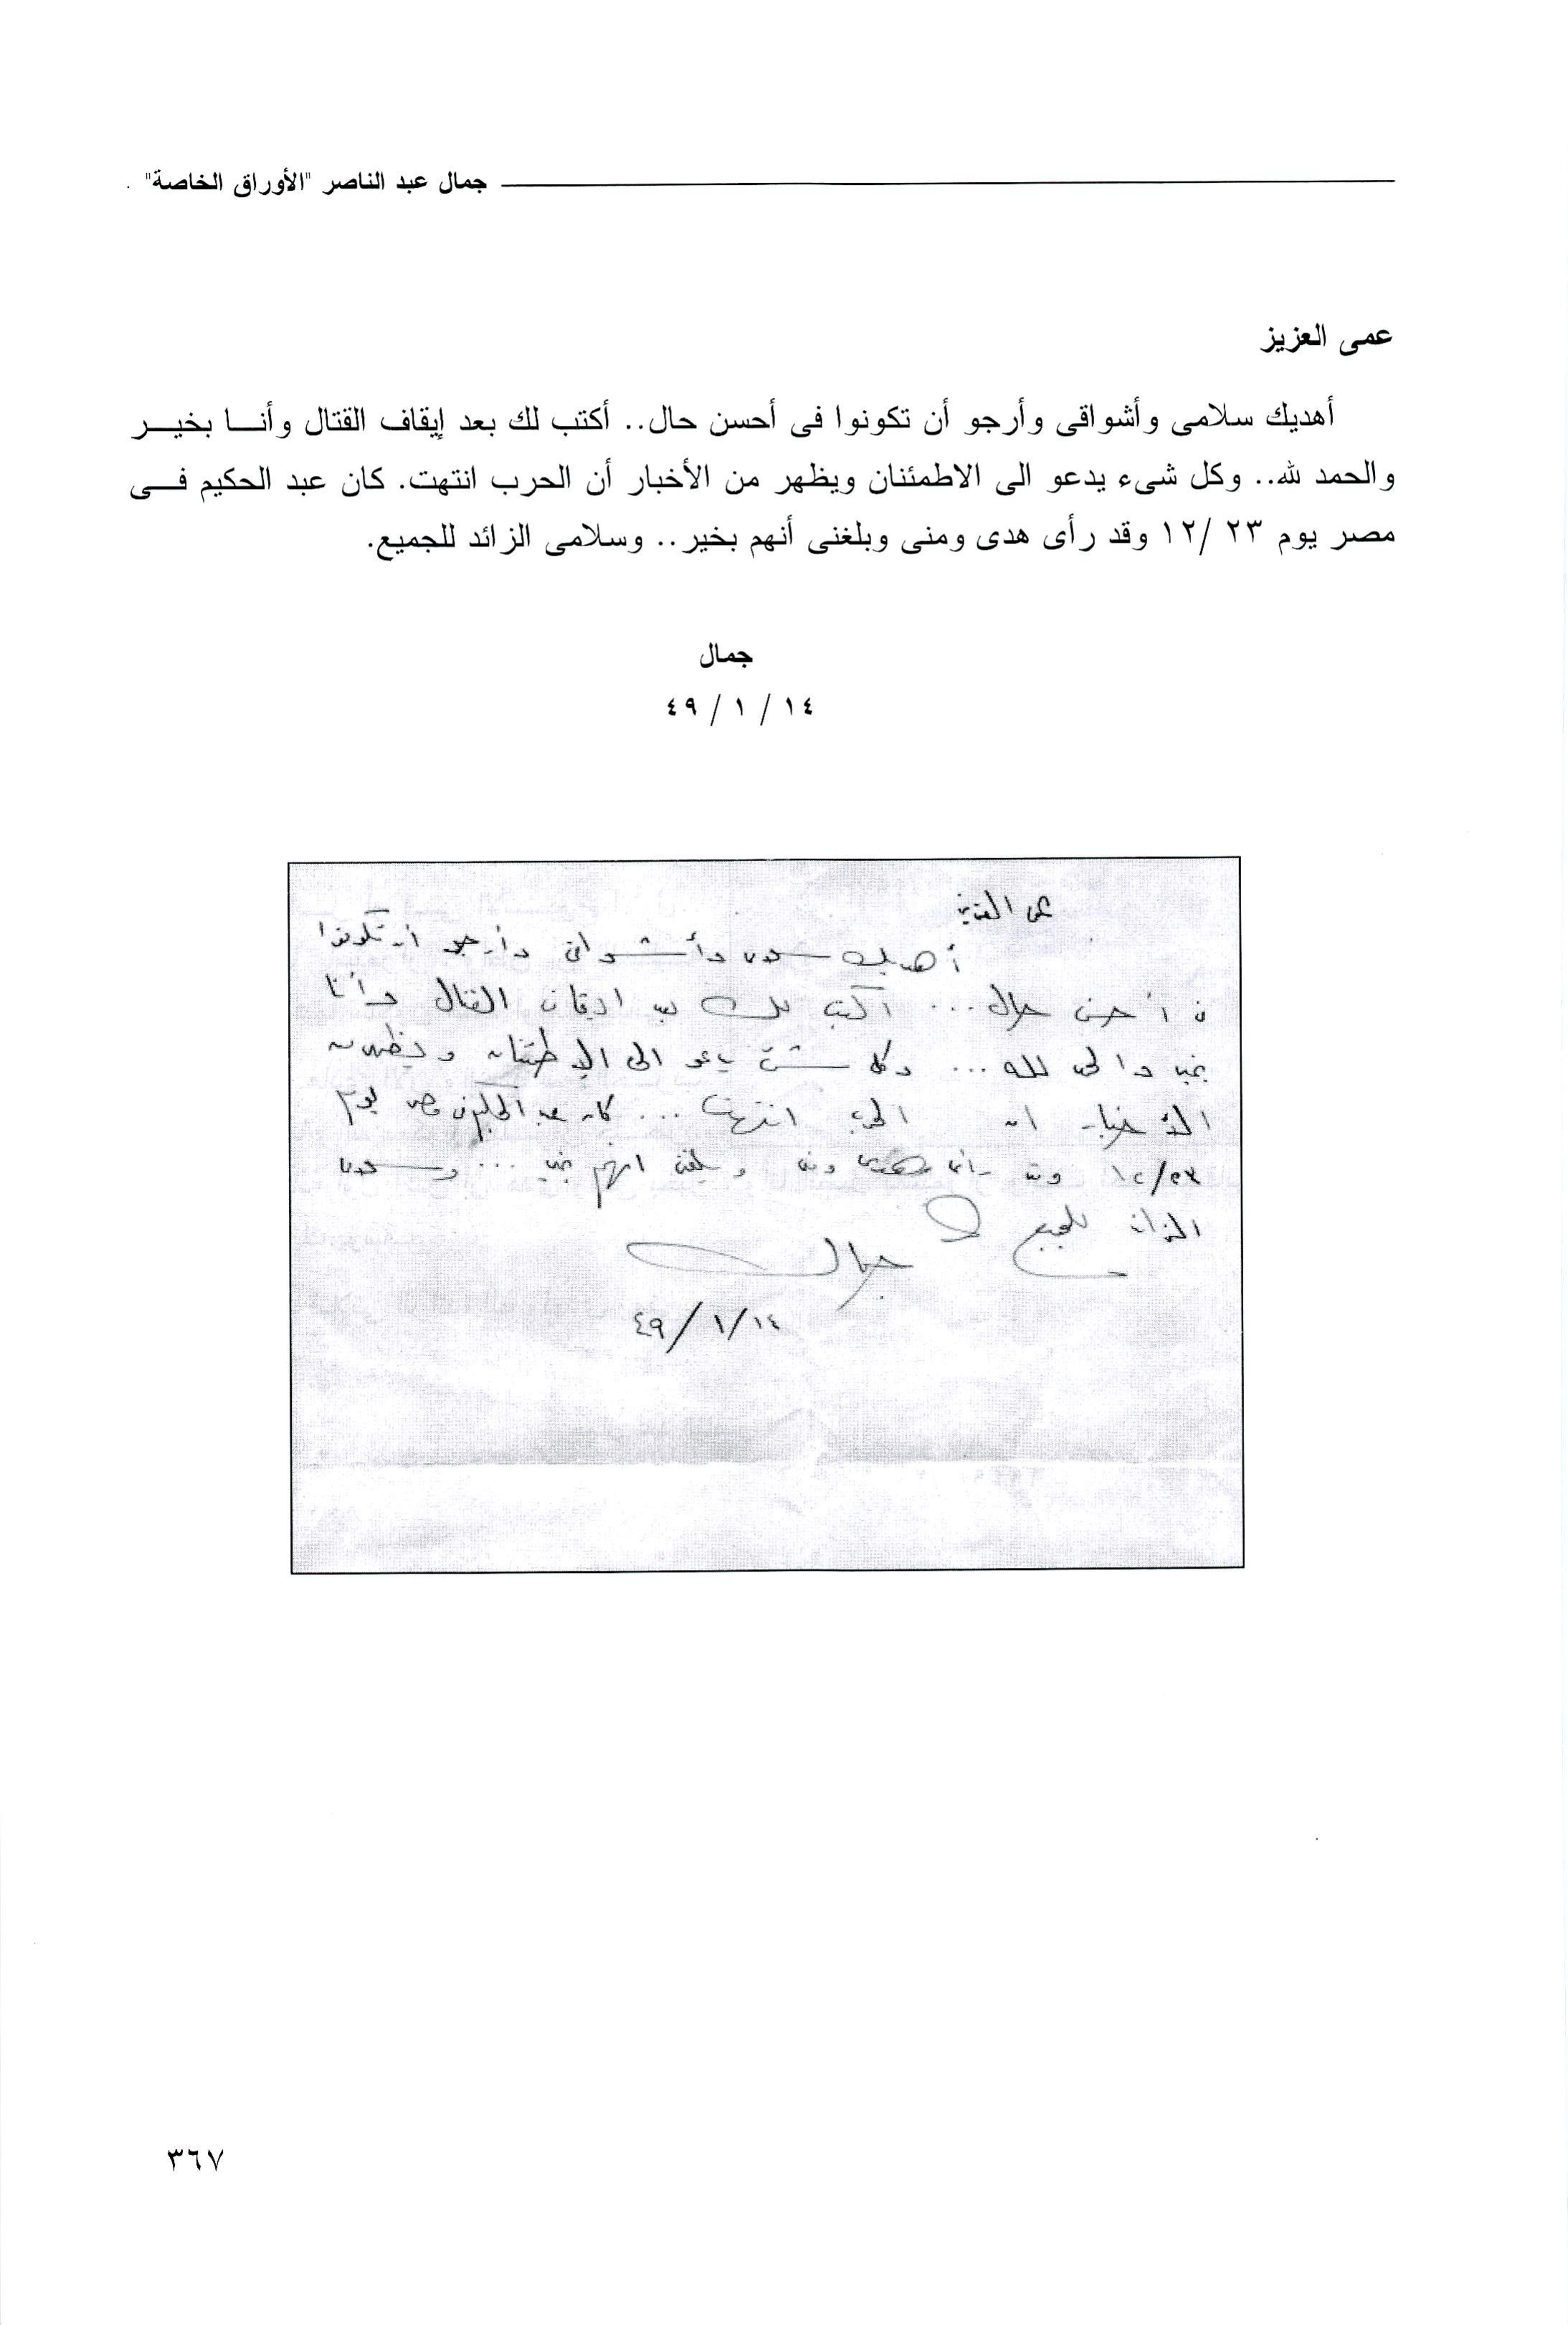 جمال عبد الناصر "الأوراق الخاصة"
عمى العزيز
أهديك سلامى وأشواقى وأرجو أن تكونوا فى أحسن حال.. أكتب لك بعد إيقاف القتال وأنا بخير
والحمد لله.. وكل شىء يدعو الى الاطمئنان ويظهر من الأخبار أن الحرب انتهت. كان عبد الحكيم فى
مصر يوم ٢٣ /١٢ وقد رأى هدى ومنى وبلغنى أنهم بخير.. وسلامى الزائد للجميع.
جمال
١٤ / ١ / ٤٩
عمى العزيز
أهديك سلامى وأشواقى وأرجو أن تكونوا
فى أحسن حال... اكتب لك بعد ايقاف القتال وأنا
بخير والحمد لله... وكل شىء يدعو الى الاطمئنان ويظهر من
الأخبار ان الحرب انتهت... كان عبد الحكيم فى مصر يوم
١٢/٢٣ وقد رأى هدى ومنى وبلغنى انهم بخير... وسلامى
الزائد للجميع
جمال
٤٩/١/١٤
٣٦٧